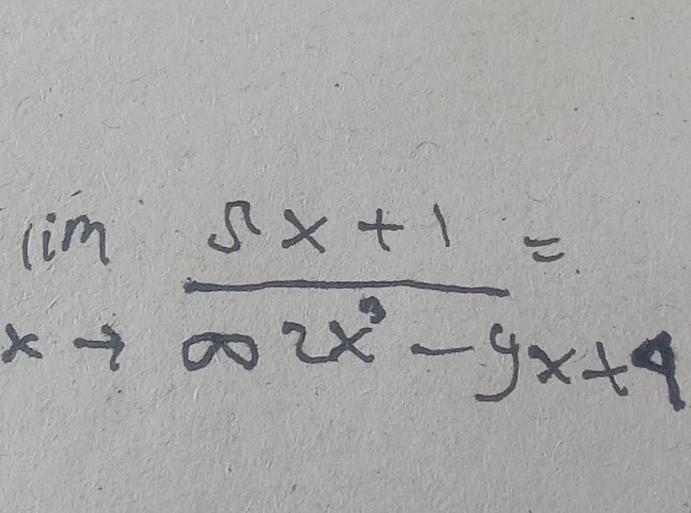 lim 5x + 1 =
x → ∞ 2x³ - 9x + 9